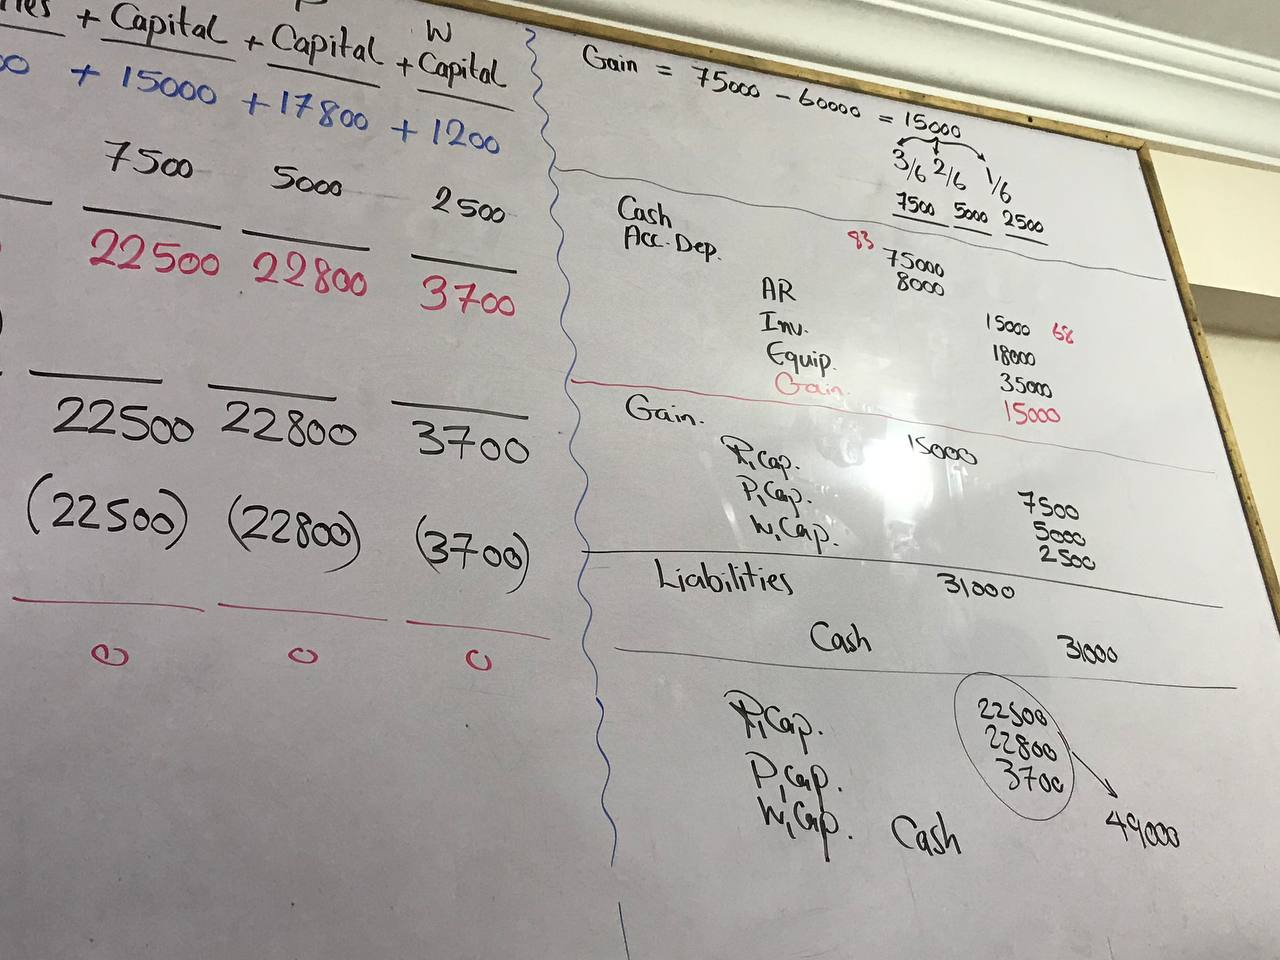 + Capital + Capital + Capital
W
+ 15000 + 17800 + 1200
7500 5000 2500
22500 22800 3700
22500 22800 3700
(22500) (22800) (3700)
0 0 0
Gain = 75000 - 60000 = 15000
3/6 2/6 1/6
7500 5000 2500
Cash 83 75000
Acc. Dep. 8000
AR 15000 68
Inv. 18000
Equip. 35000
Gain 15000
Gain. 15000
R, Cap. 7500
P, Cap. 5000
W, Cap. 2500
Liabilities 31000
Cash 31000
R, Cap. 22500
P, Cap. 22800
W, Cap. 3700
Cash 49000